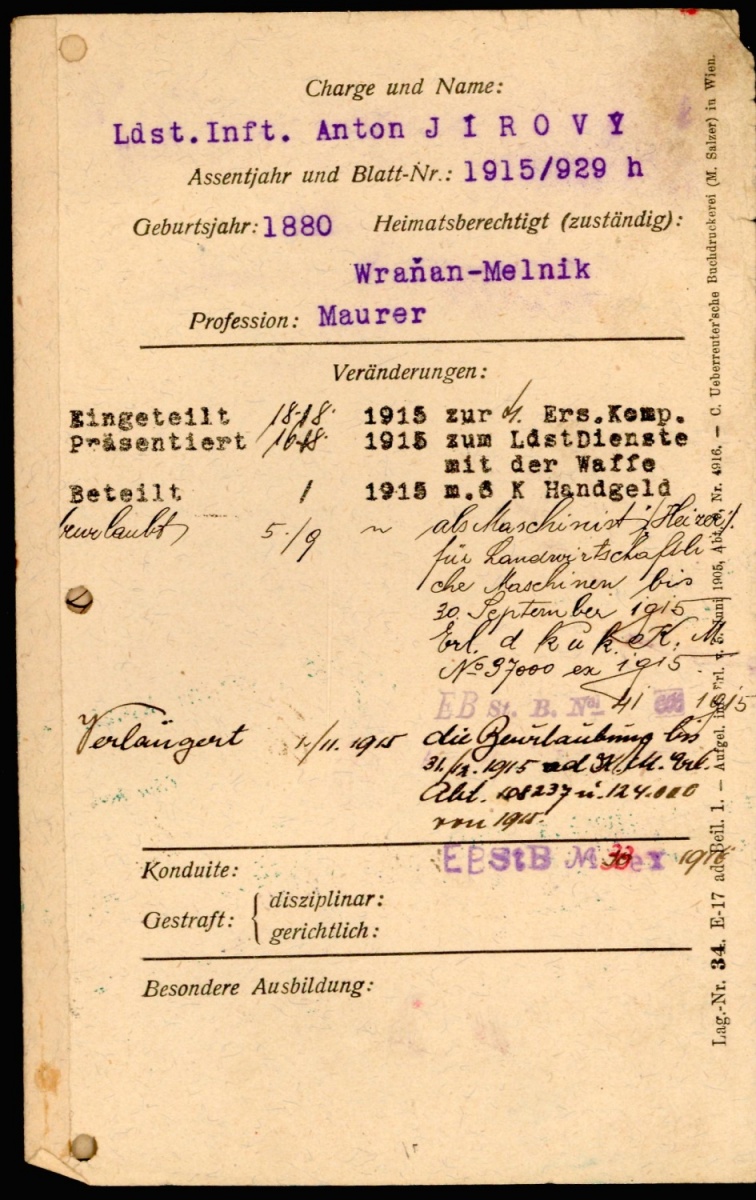 Charge und Name:
Ldst.Inft. Anton JÍROVÝ
Assentjahr und Blatt-Nr.: 1915/929 h
Geburtsjahr: 1880 Heimatsberechtigt (zuständig):
Wraňan-Melnik
Profession: Maurer
Veränderungen:
Eingeteilt 1915 zur Ers.Komp.
Präsentiert 1915 zum LdstDienste
mit der Waffe
Beteilt 1915 m. K Handgeld
beurlaubt 5./9 als Maschinist /Heizer/
für Landwirtschaftli
che Maschinen bis
30. September 1915
Erl. d K u k. K. M.
No 97000 ex 1915.
EB St. B. No 41 1915
Verlängert 1./11. 1915 die Beurlaubung bis
31./12. 1915 ad K. M. Erl.
Abt. 108237 u. 124.000
von 1915.
EBStB
Konduite:
Gestraft: disziplinar:
gerichtlich:
Besondere Ausbildung:
Lag.-Nr. 34. E-17 ad Beil. 1. — Aufgel. Juni 1905, Nr. 4916. — C. Ueberreuter'sche Buchdruckerei (M. Salzer) in Wien.